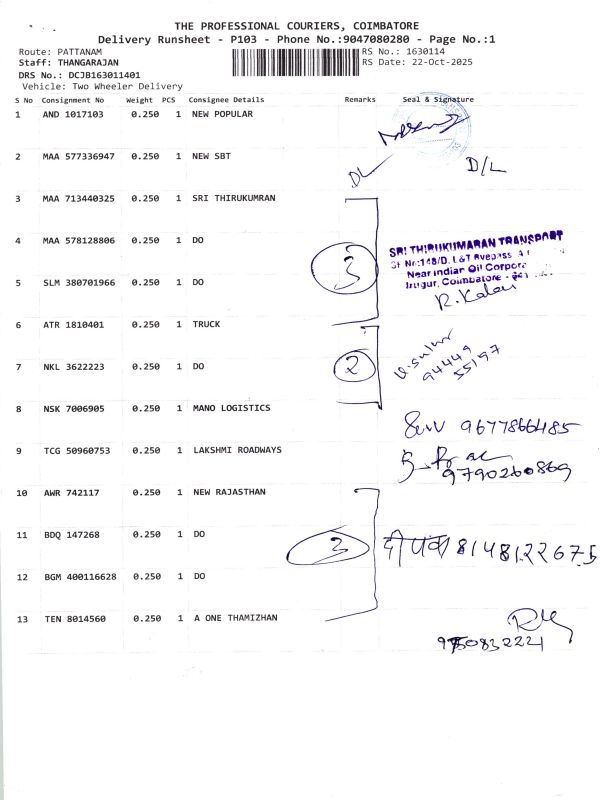 THE PROFESSIONAL COURIERS, COIMBATORE
Delivery Runsheet - P103 - Phone No.:9047080280 - Page No.:1
Route: PATTANAM RS No.: 1630114
Staff: THANGARAJAN RS Date: 22-Oct-2025
DRS No.: DCJB163011401
Vehicle: Two Wheeler Delivery
S No Consignment No Weight PCS Consignee Details Remarks Seal & Signature
1 AND 1017103 0.250 1 NEW POPULAR
2 MAA 577336947 0.250 1 NEW SBT DL D/L
3 MAA 713440325 0.250 1 SRI THIRUKUMRAN
4 MAA 578128806 0.250 1 DO 3
SRI THIRUKUMARAN TRANSPORT
Near Indian Oil Corpora
Irugur, Coimbatore
5 SLM 380701966 0.250 1 DO
R. Kalai
6 ATR 1810401 0.250 1 TRUCK
7 NKL 3622223 0.250 1 DO 2
94449
55197
8 NSK 7006905 0.250 1 MANO LOGISTICS
9677866485
9 TCG 50960753 0.250 1 LAKSHMI ROADWAYS
9790260869
10 AWR 742117 0.250 1 NEW RAJASTHAN
11 BDQ 147268 0.250 1 DO 3 दीपक 8148122675
12 BGM 400116628 0.250 1 DO
13 TEN 8014560 0.250 1 A ONE THAMIZHAN